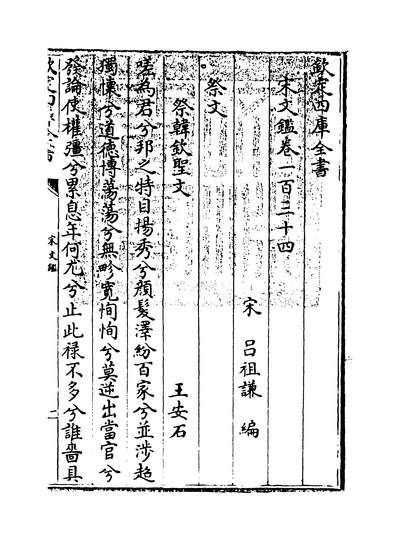 欽定四庫全書
宋文鑑卷一百三十四
宋 呂祖謙 編
祭文
祭韓欽聖文
王安石
嗟為君兮邦之特目揚秀兮顔髮澤紛百家兮並涉超
獨懐兮道徳博蕩蕩兮無畛寛恂恂兮莫逆出當官兮
發論使權彊兮累息年何尤兮止此禄不多兮誰嗇具
欽定四庫全書
宋文鑑